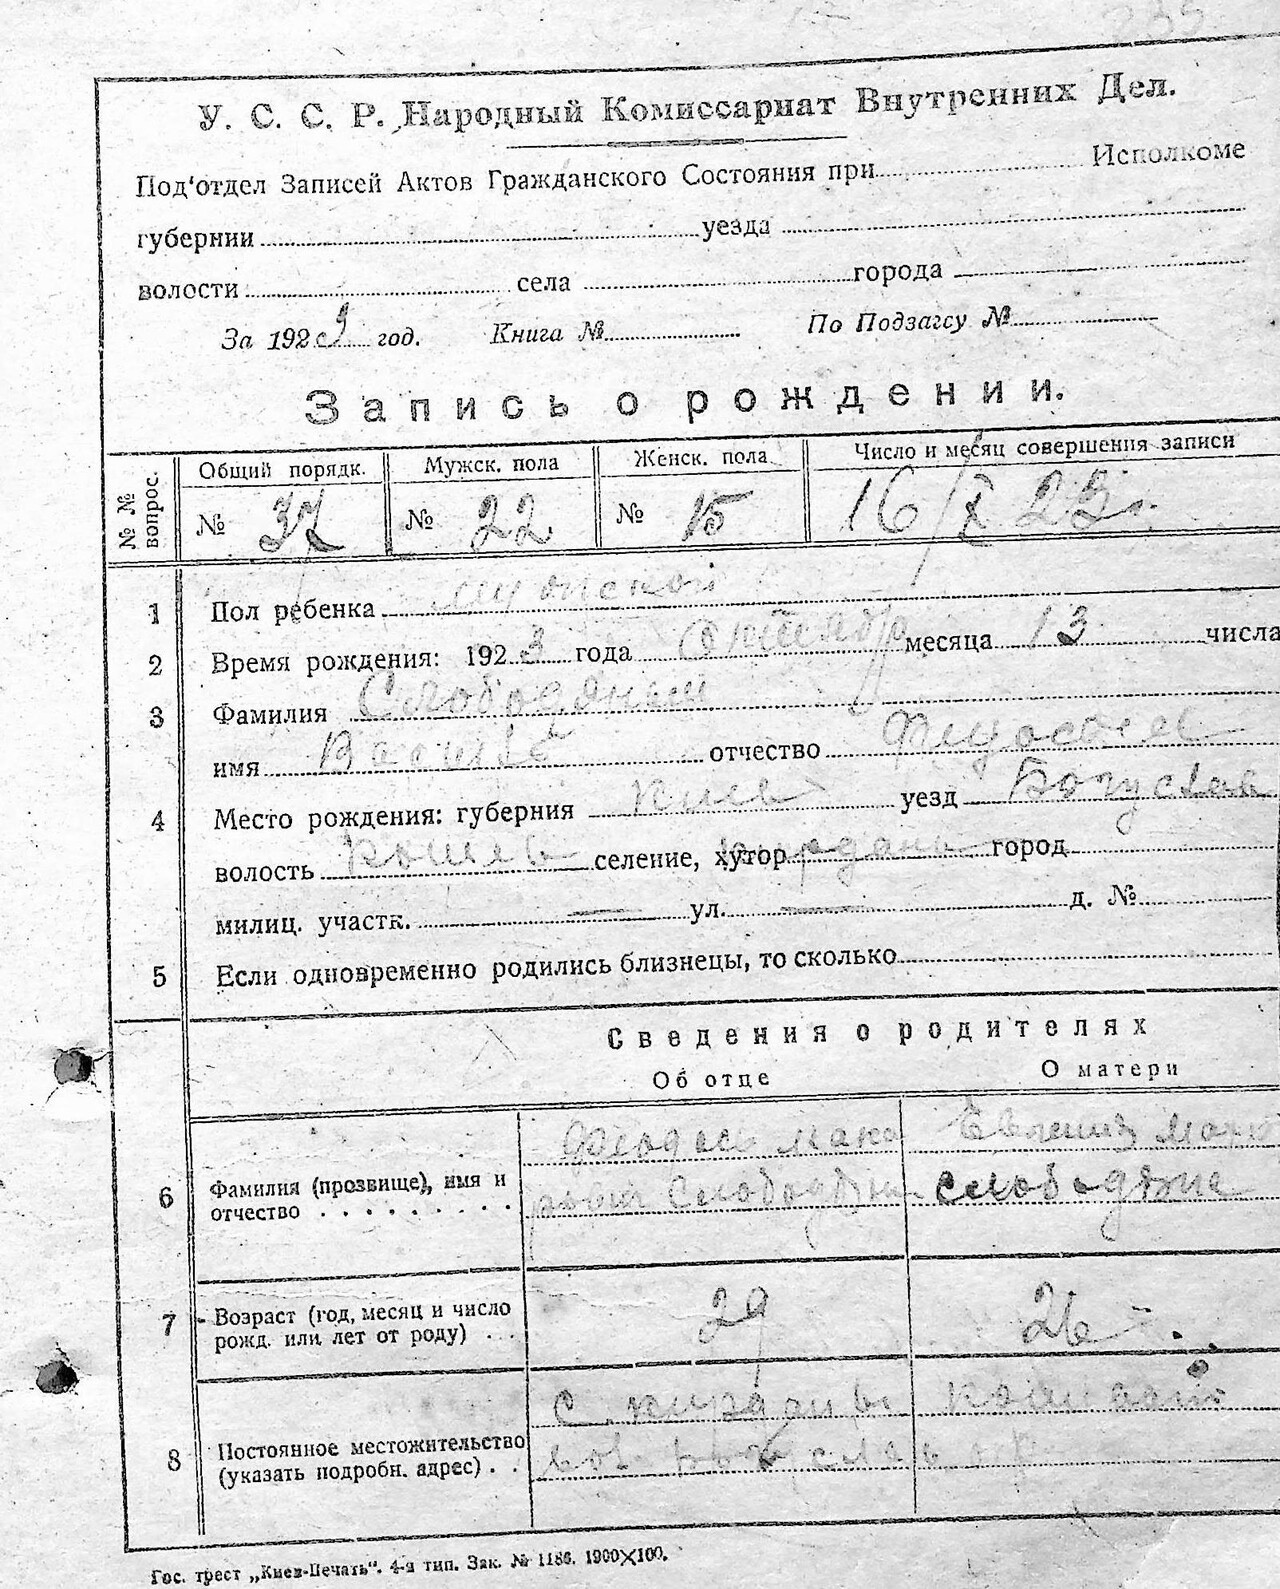 У. С. С. Р. Народный Комиссариат Внутренних Дел.
Под'отдел Записей Актов Гражданского Состояния при Исполкоме
губернии уезда
волости села города
За 1923 год. Книга № По Подзагсу №
Запись о рождении.
№ № вопрос. Общий порядк. Мужск. пола Женск. пола Число и месяц совершения записи
№ 37 № 22 № 15 16/X 23 г.
1 Пол ребенка мужской
2 Время рождения: 1923 года октября месяца 13 числа
3 Фамилия Слободяный
имя отчество
4 Место рождения: губерния Киев уезд Богуслав
волость селение, хутор Кирданы город
милиц. участк. — ул. — д. №
5 Если одновременно родились близнецы, то сколько
Сведения о родителях
Об отце О матери
6 Фамилия (прозвище), имя и
отчество . . . . . . . . .
7 Возраст (год, месяц и число
рожд. или лет от роду) . . . 29 26
8 Постоянное местожительство
(указать подробн. адрес) . . с. Кирданы
Гос. трест „Киев-Печать“. 4-я тип. Зак. № 1186. 1900×100.